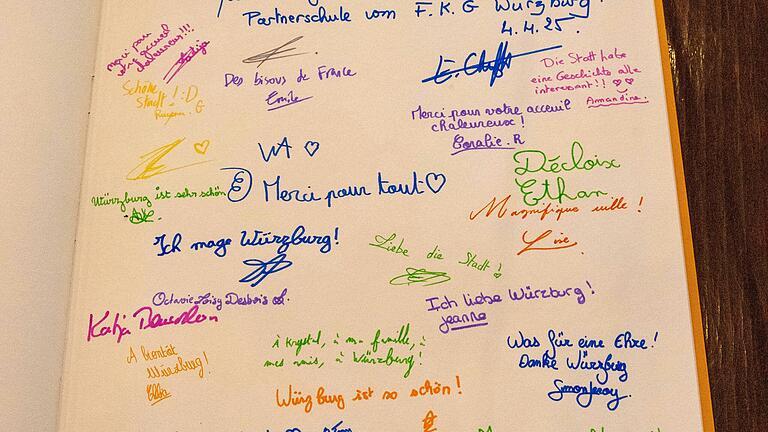 Partnerschule vom F.K.G Würzburg!
4.4.25.
Merci pour
votre accueil
chaleureux!!!
Des bisous de France
Emile
Die Stadt habe
eine Geschichte alle
interessant!! ♡♡
Amandine.
Schöne
Stadt! :D
Merci pour votre acceuil
chaleureux!
Coralie.R
♡
Décloix
Ethan.
Würzburg ist sehr schön
Merci pour tout ♡
Magnifique ville!
Lise
Ich mage Würzburg!
Liebe die Stadt!
Ich liebe Würzburg!
Jeanne
Katja
A bientôt
Würzburg!
à Krystal, à ma famille, à
mes amis, à Würzburg!
Was für eine Ehre!
Danke Würzburg
Würzburg ist so schön!